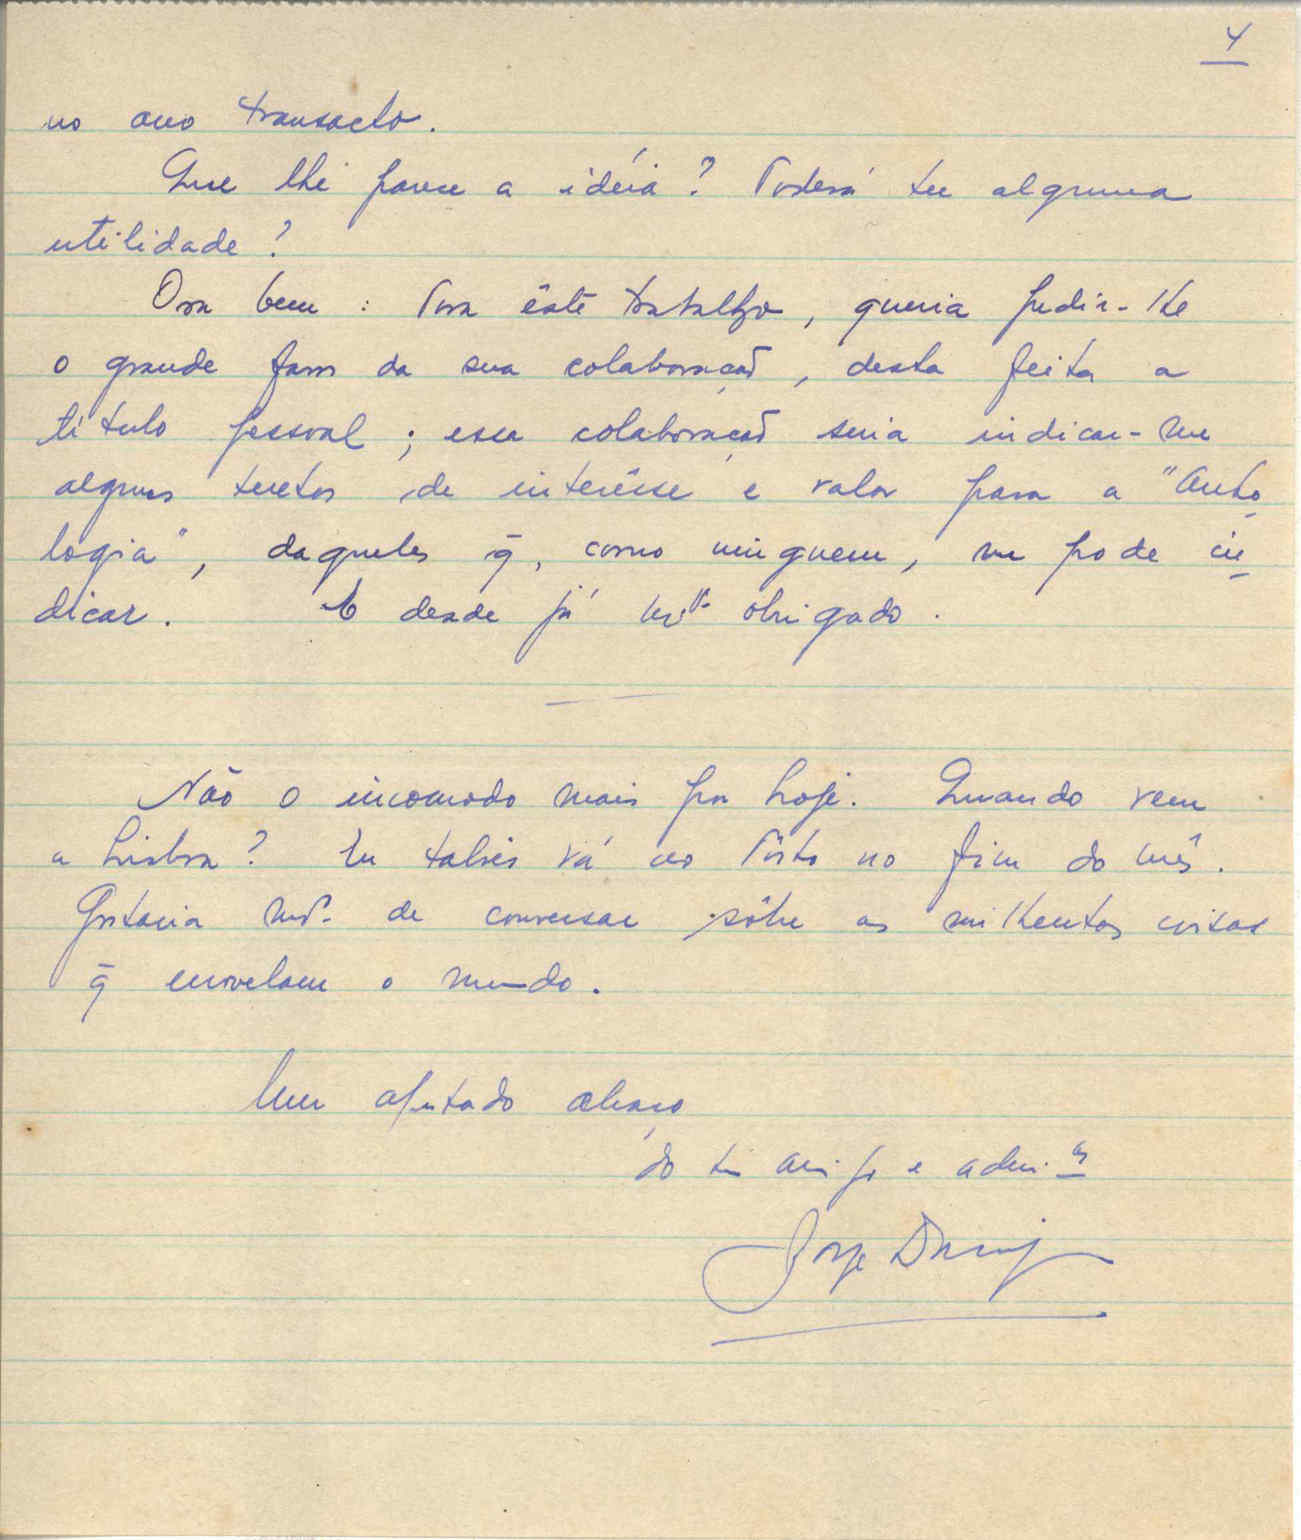 4
no ano transacto.
Que lhe parece a idéia? Poderá ter alguma
utilidade?
Ora bem: Para êste trabalho, queria pedir-lhe
o grande favor da sua colaboração, desta feita a
título pessoal; essa colaboração seria indicar-me
alguns textos de interêsse e valor para a "Anto
logia", daqueles q̄, como ninguem, me pode in
dicar. E desde já mtº obrigado.
Não o incomodo mais por hoje. Quando vem
a Lisboa? Eu talvez vá ao Pôrto no fim do mês.
Gostaria mtº. de conversar sôbre as milhentas coisas
q̄ enovelam o mundo.
Um apertado abraço
do seu amigo e admi.or
Jorge